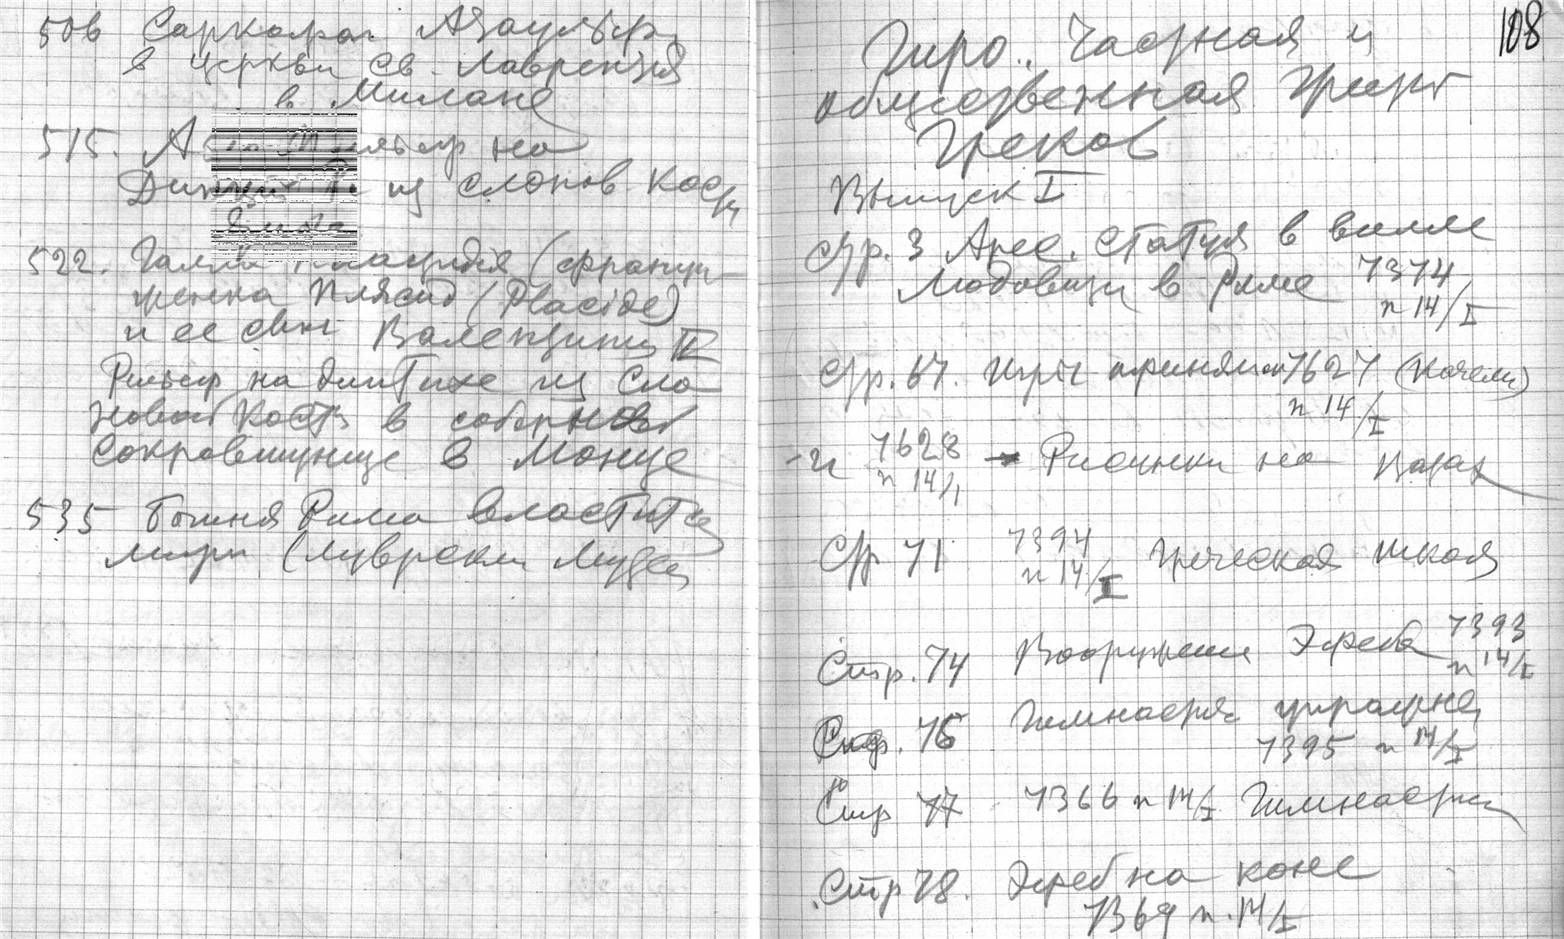 506 Саркофаг Атаульфа
в церкви Св. Лаврентия
в Милане
515. рельеф на
из слонов. кости
522. Галла Плацидия (француженка
Плясид (Placide)
и ее сын Валентиниан III
Рельеф на диптихе из сло
новой кости в соборной
сокровищнице в Монце
535 Богиня Рима властит.
мира (Луврский Музей
108
Гиро.. Частная и
общественная жизнь
Греков
Выпуск I
стр. 3 Арес. Статуя в вилле
Людовици в Риме 7374
п 14/I
стр. 67. Игры 7627 (качели)
п 14/I
- и 7628 - Рисунки на вазах
п 14/I
Стр 71 7394 Греческая школа
п 14/I
Стр. 74 Вооружение Эфеба 7393
п 14/I
Стр. 76 Гимнастич. упражнен.
7395 п 14/I
Стр 77 7366 п 14/I Гимнастика
Стр 78. Эфеб на коне
7369 п. 14/I